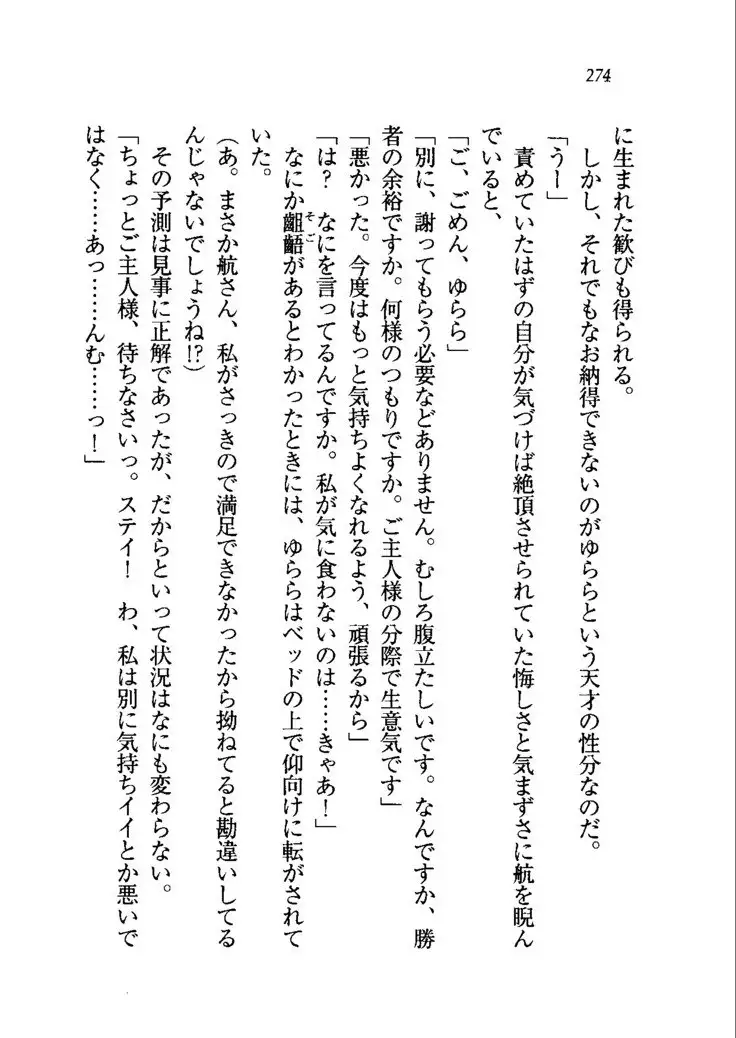 274
に生まれた歓びも得られる。
しかし、それでもなお納得できないのがゆららという天才の性分なのだ。
「うー」
責めていたはずの自分が気づけば絶頂させられていた悔しさと気まずさに航を睨ん
でいると、
「ご、ごめん、ゆらら」
「別に、謝ってもらう必要などありません。むしろ腹立たしいです。なんですか、勝
者の余裕ですか。何様のつもりですか。ご主人様の分際で生意気です」
「悪かった。今度はもっと気持ちよくなれるよう、頑張るから」
「は？　なにを言ってるんですか。私が気に食わないのは……きゃあ！」
なにか齟齬があるとわかったときには、ゆららはベッドの上で仰向けに転がされて
そご
いた。
（あ。まさか航さん、私がさっきので満足できなかったから拗ねてると勘違いしてる
んじゃないでしょうね!?）
その予測は見事に正解であったが、だからといって状況はなにも変わらない。
「ちょっとご主人様、待ちなさいっ。ステイ！　わ、私は別に気持ちイイとか悪いで
はなく……あっ……んむ……っ！」